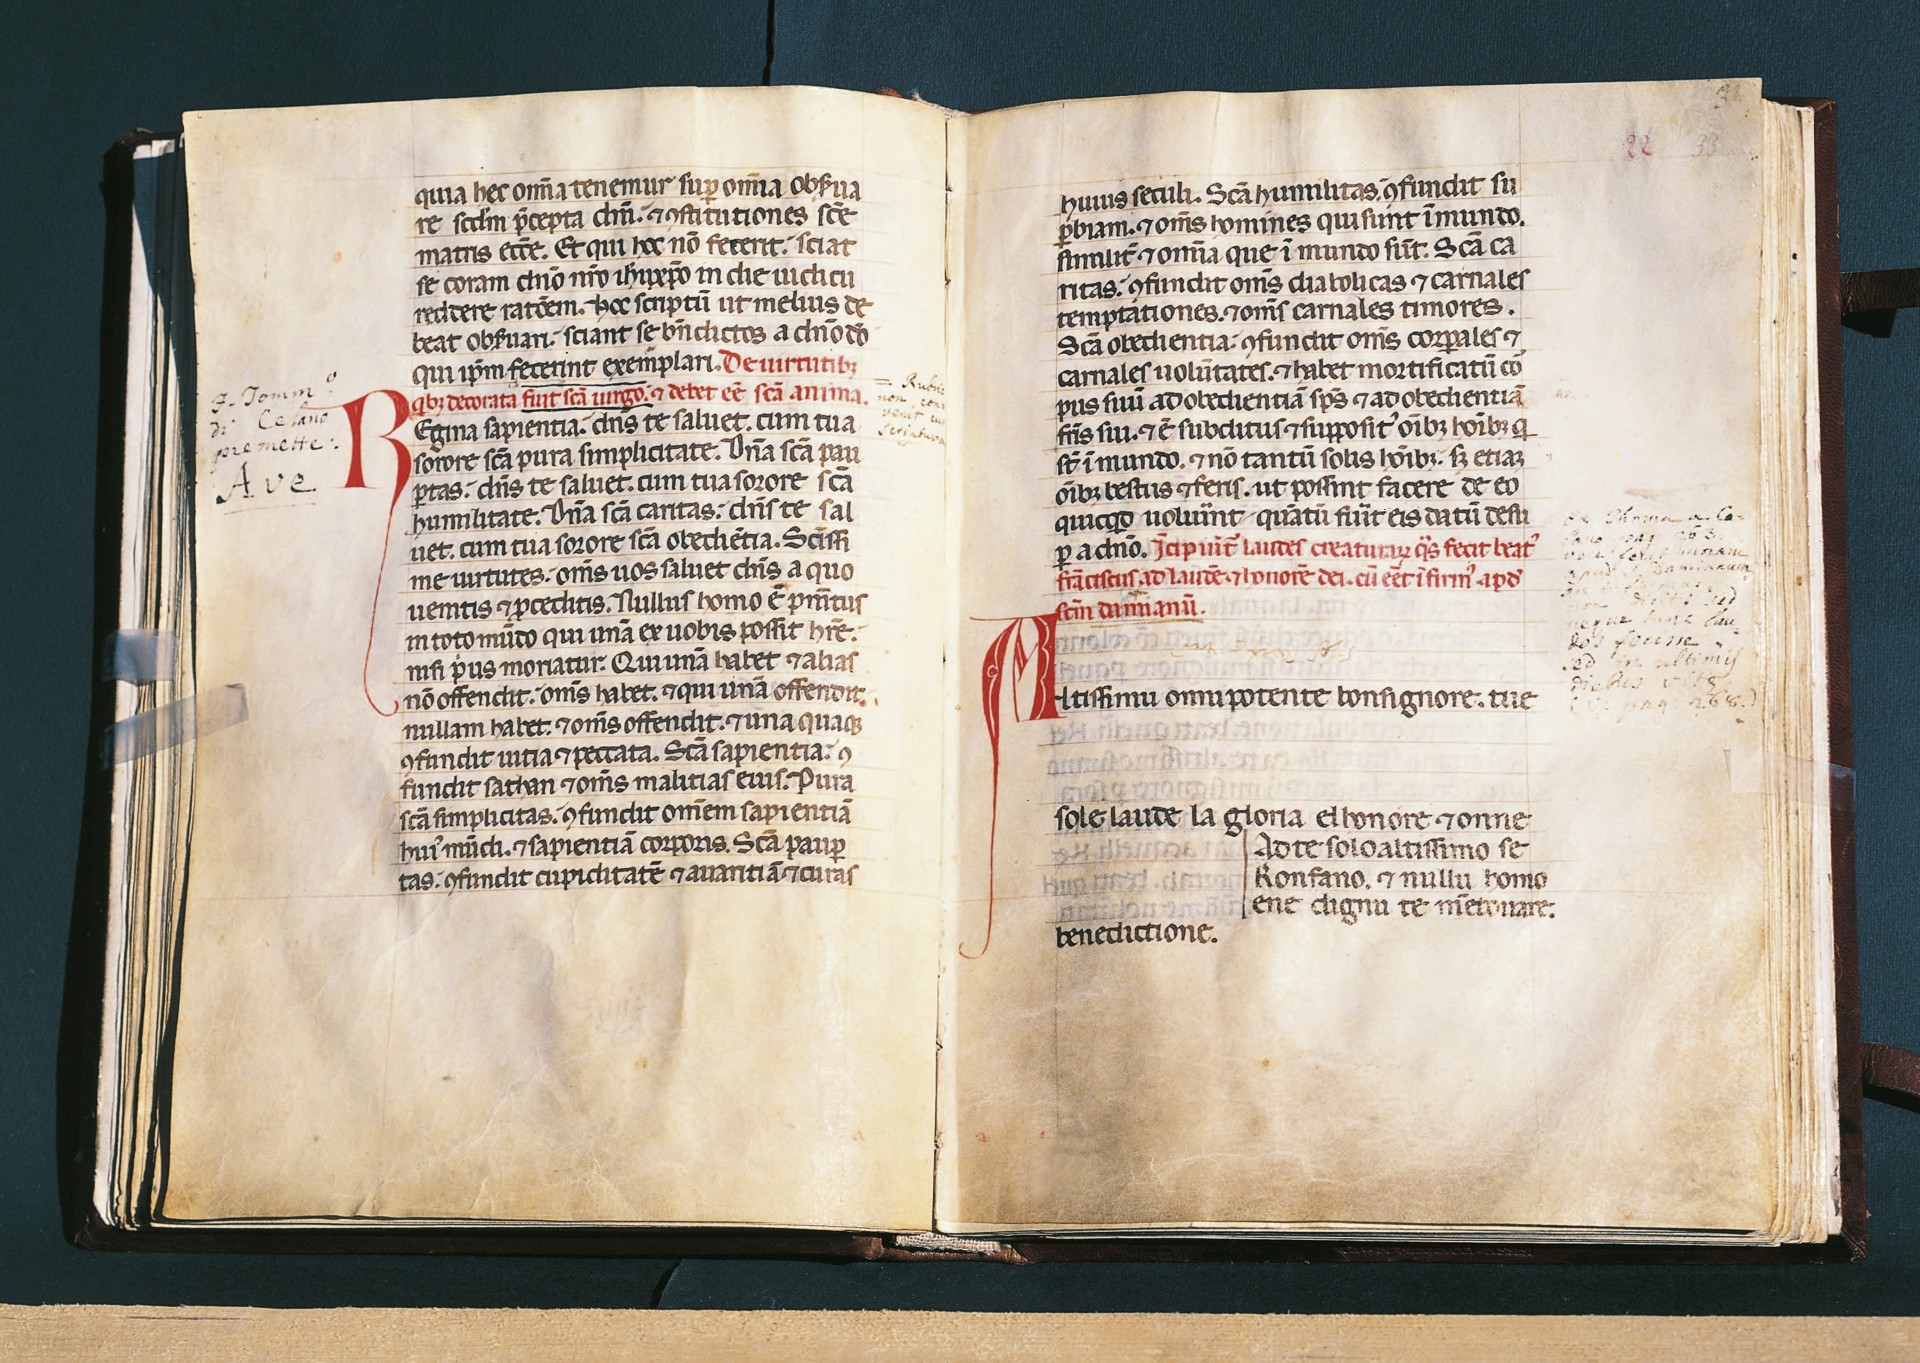 quia hec om̄ia tenemur sup̱ om̄ia obẜua
re scḋm p̄cepta dn̄i. ⁊ ꝯstitutiones sc̄e
matris ecc̄e. Et qui hoc nō fecerit. sciat
se coram dn̄o nr̄o ih̄uxp̄o in die iudicii
reddere rat̄oem. hoc scriptū ut melius de
beat obẜuari. sciant se bn̄dictos a dn̄o dō
qui ip̄m fecerint exemplari. De uirtutibꝫ
qͥbꝫ decorata fuit sc̄a uirgo. ⁊ debet eē sc̄a anima.
REgina sapientia. dn̄s te saluet. cum tua
sorore sc̄a pura simplicitate. Dn̄a sc̄a pau
ꝑtas. dn̄s te saluet. cum tua sorore sc̄a
humilitate. Dn̄a sc̄a caritas. dn̄s te sal
uet. cum tua sorore sc̄a obediētia. Sc̄issi
me uirtutes. om̄s uos saluet dn̄s a quo
uenitis ⁊ ꝓceditis. Nullus homo ē p̄m̄tus
in toto mūdo qui unā ex uobis possit hr̄e.
nisi p̓us moriatur. Qui unā habet ⁊ alias
nō offendit. om̄s habet. ⁊ qui unā offendit.
nullam habet. ⁊ om̄s offendit. ⁊ una quaqꝫ
ꝯfundit uitia ⁊ peccata. Sc̄a sapientia. ꝯ
fundit sathan ⁊ om̄s malitias eius. Pura
sc̄a simplicitas. ꝯfundit omnem sapientiā
huiꝰ mūdi. ⁊ sapientiā corporis. Sc̄a pauꝑ
tas. ꝯfundit cupiditatē ⁊ auaritiā ⁊ curas
F. Tomm.º
di Celano
premette:
Ave
Rubric
non con
venit cum
scriptura
22 33
huius seculi. Sc̄a humilitas. ꝯfundit su
ꝑbiam. ⁊ om̄s homines qui sunt ī mundo.
similit̄ ⁊ omīa que ī mundo sūt. Sc̄a ca
ritas. ꝯfundit om̄s diabolicas ⁊ carnales
temptationes. ⁊ om̄s carnales timores.
Sc̄a obedientia. ꝯfundit om̄s corꝑales ⁊
carnales uolūtates. ⁊ habet mortificatū cor
pus suū ad obedientiā sp̄s ⁊ ad obedientiā
fr̄is sui. ⁊ ē subditus ⁊ suppositꝰ oībꝫ hoībꝫ q̄
st̄ ī mundo. ⁊ nō tantū solis hoībꝫ. sꝫ etiaꝫ
oībꝫ bestiis ⁊ feris. ut possint facere de eo
quicqͥd uoluīnt quātū fuīt eis datū desu
ꝑ a dn̄o. Īcipiūt laudes creaturaꝝ q̄s fecit beatꝰ
frāciscus ad laudē ⁊ honorē dei. cū eēt īfirmꝰ apd̓
sc̄m damianū.
Altissimu onnipotente bonsignore. tue
sole laude la gloria elhonore ⁊ onne
Ad te solo altissimo se
konfano. ⁊ nullu homo
ene dignu te mētouare.
benedictione.
Ex Thoma a Ce-
lano pag. 263.
sed in ultimis
diebus vitæ